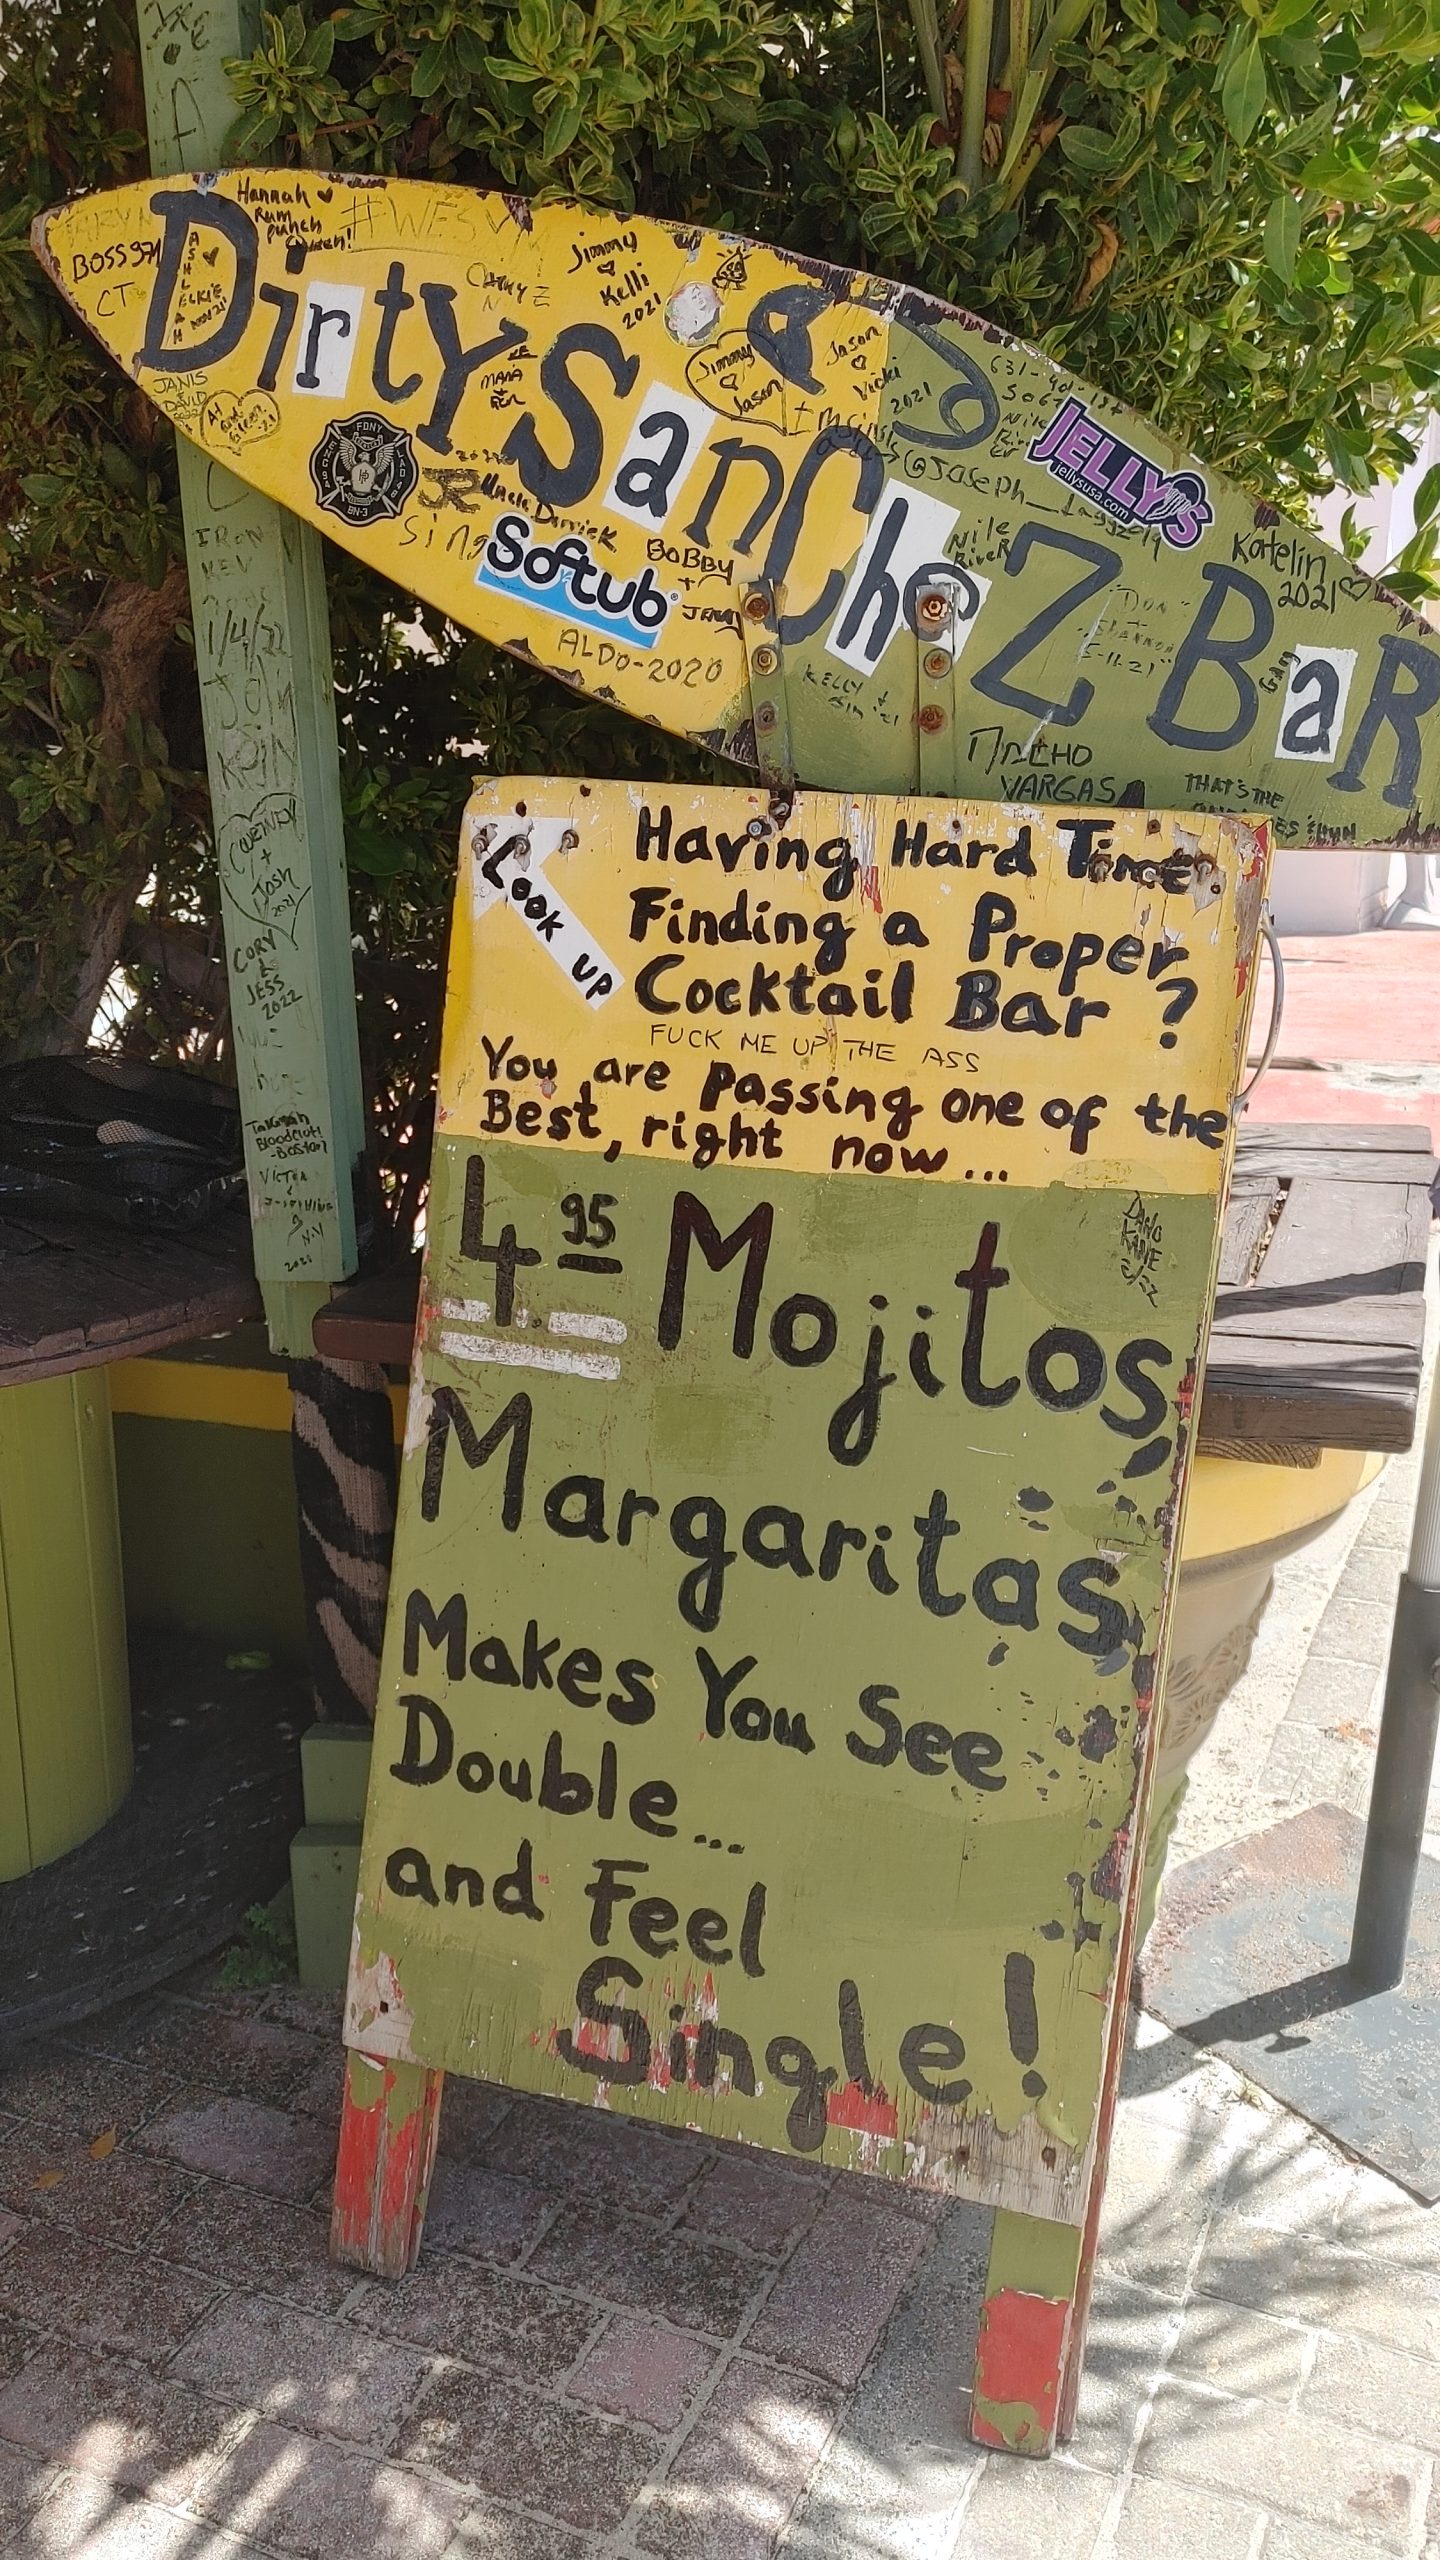 Hannah ♥
Rum
punch
Queen!
#WES
BOSS971
CT
Jimmy
♡
Kelli
2021
Dirty SanCheZ BaR
Jimmy
♡
Jason
Jason
♡
Vicki
2021
JANIS
DAVID
2022
FDNY
BN-3
MARA
Uncle Derrick
Sing
Softub
BOBBY
+
JENNY
ALDO-2020
JELLY'S
jellysusa.com
Nile
RiveR
Katelin
2021♡
"DON"
+
SHANNON
5-11-21"
KELLY +
VARGAS
THAT'S THE
IRON
KEV
1/4/22
JOIN
+
Josh
2021
CORY
&
JESS
2022
Look UP
Having Hard Time
Finding a Proper
Cocktail Bar ?
FUCK ME UP THE ASS
You are passing one of the
Best, right now...
Bloodclot!
-Boston
VICTOR
N.Y
2021
4.95 Mojitos,
KANE
Margaritas
Makes You See
Double...
and Feel
Single!